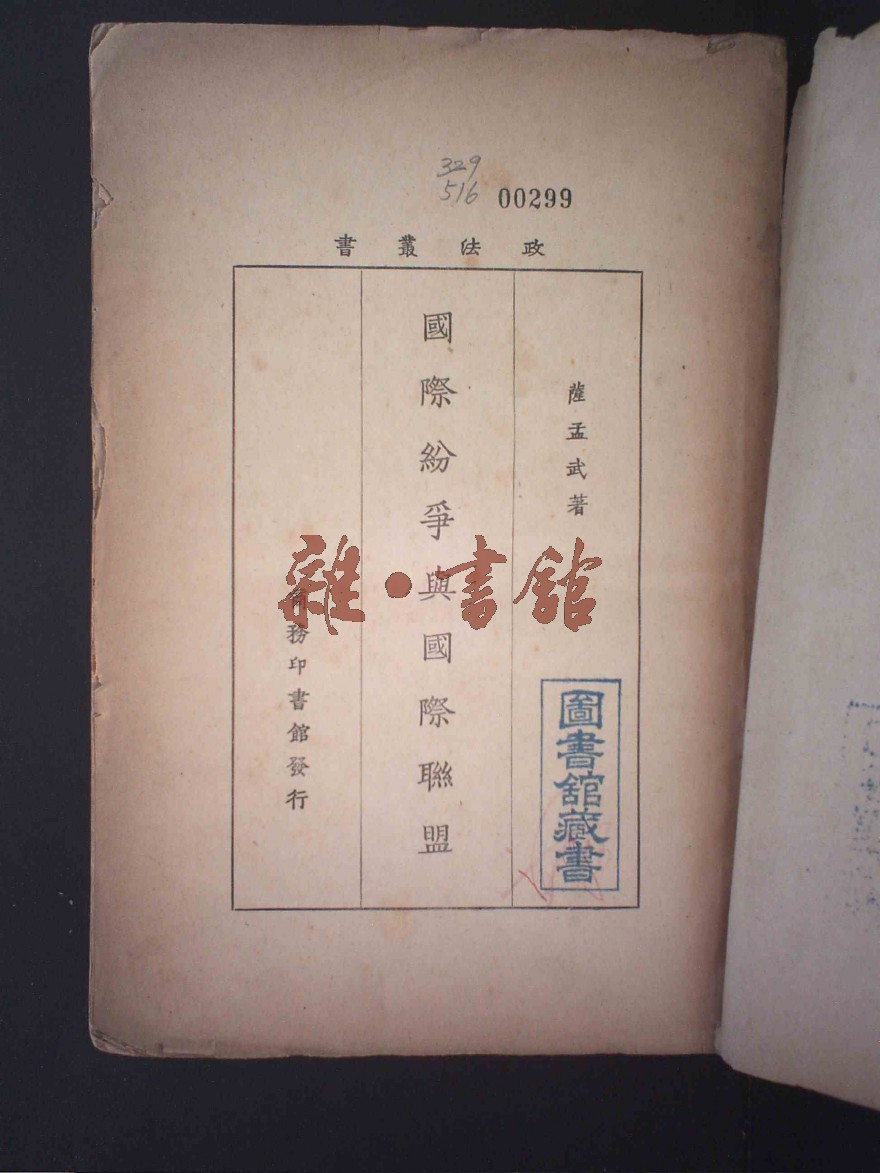 329
516
00299
政法叢書
薩孟武著
國際紛爭與國際聯盟
商務印書館發行
雜·書館
圖書館藏書